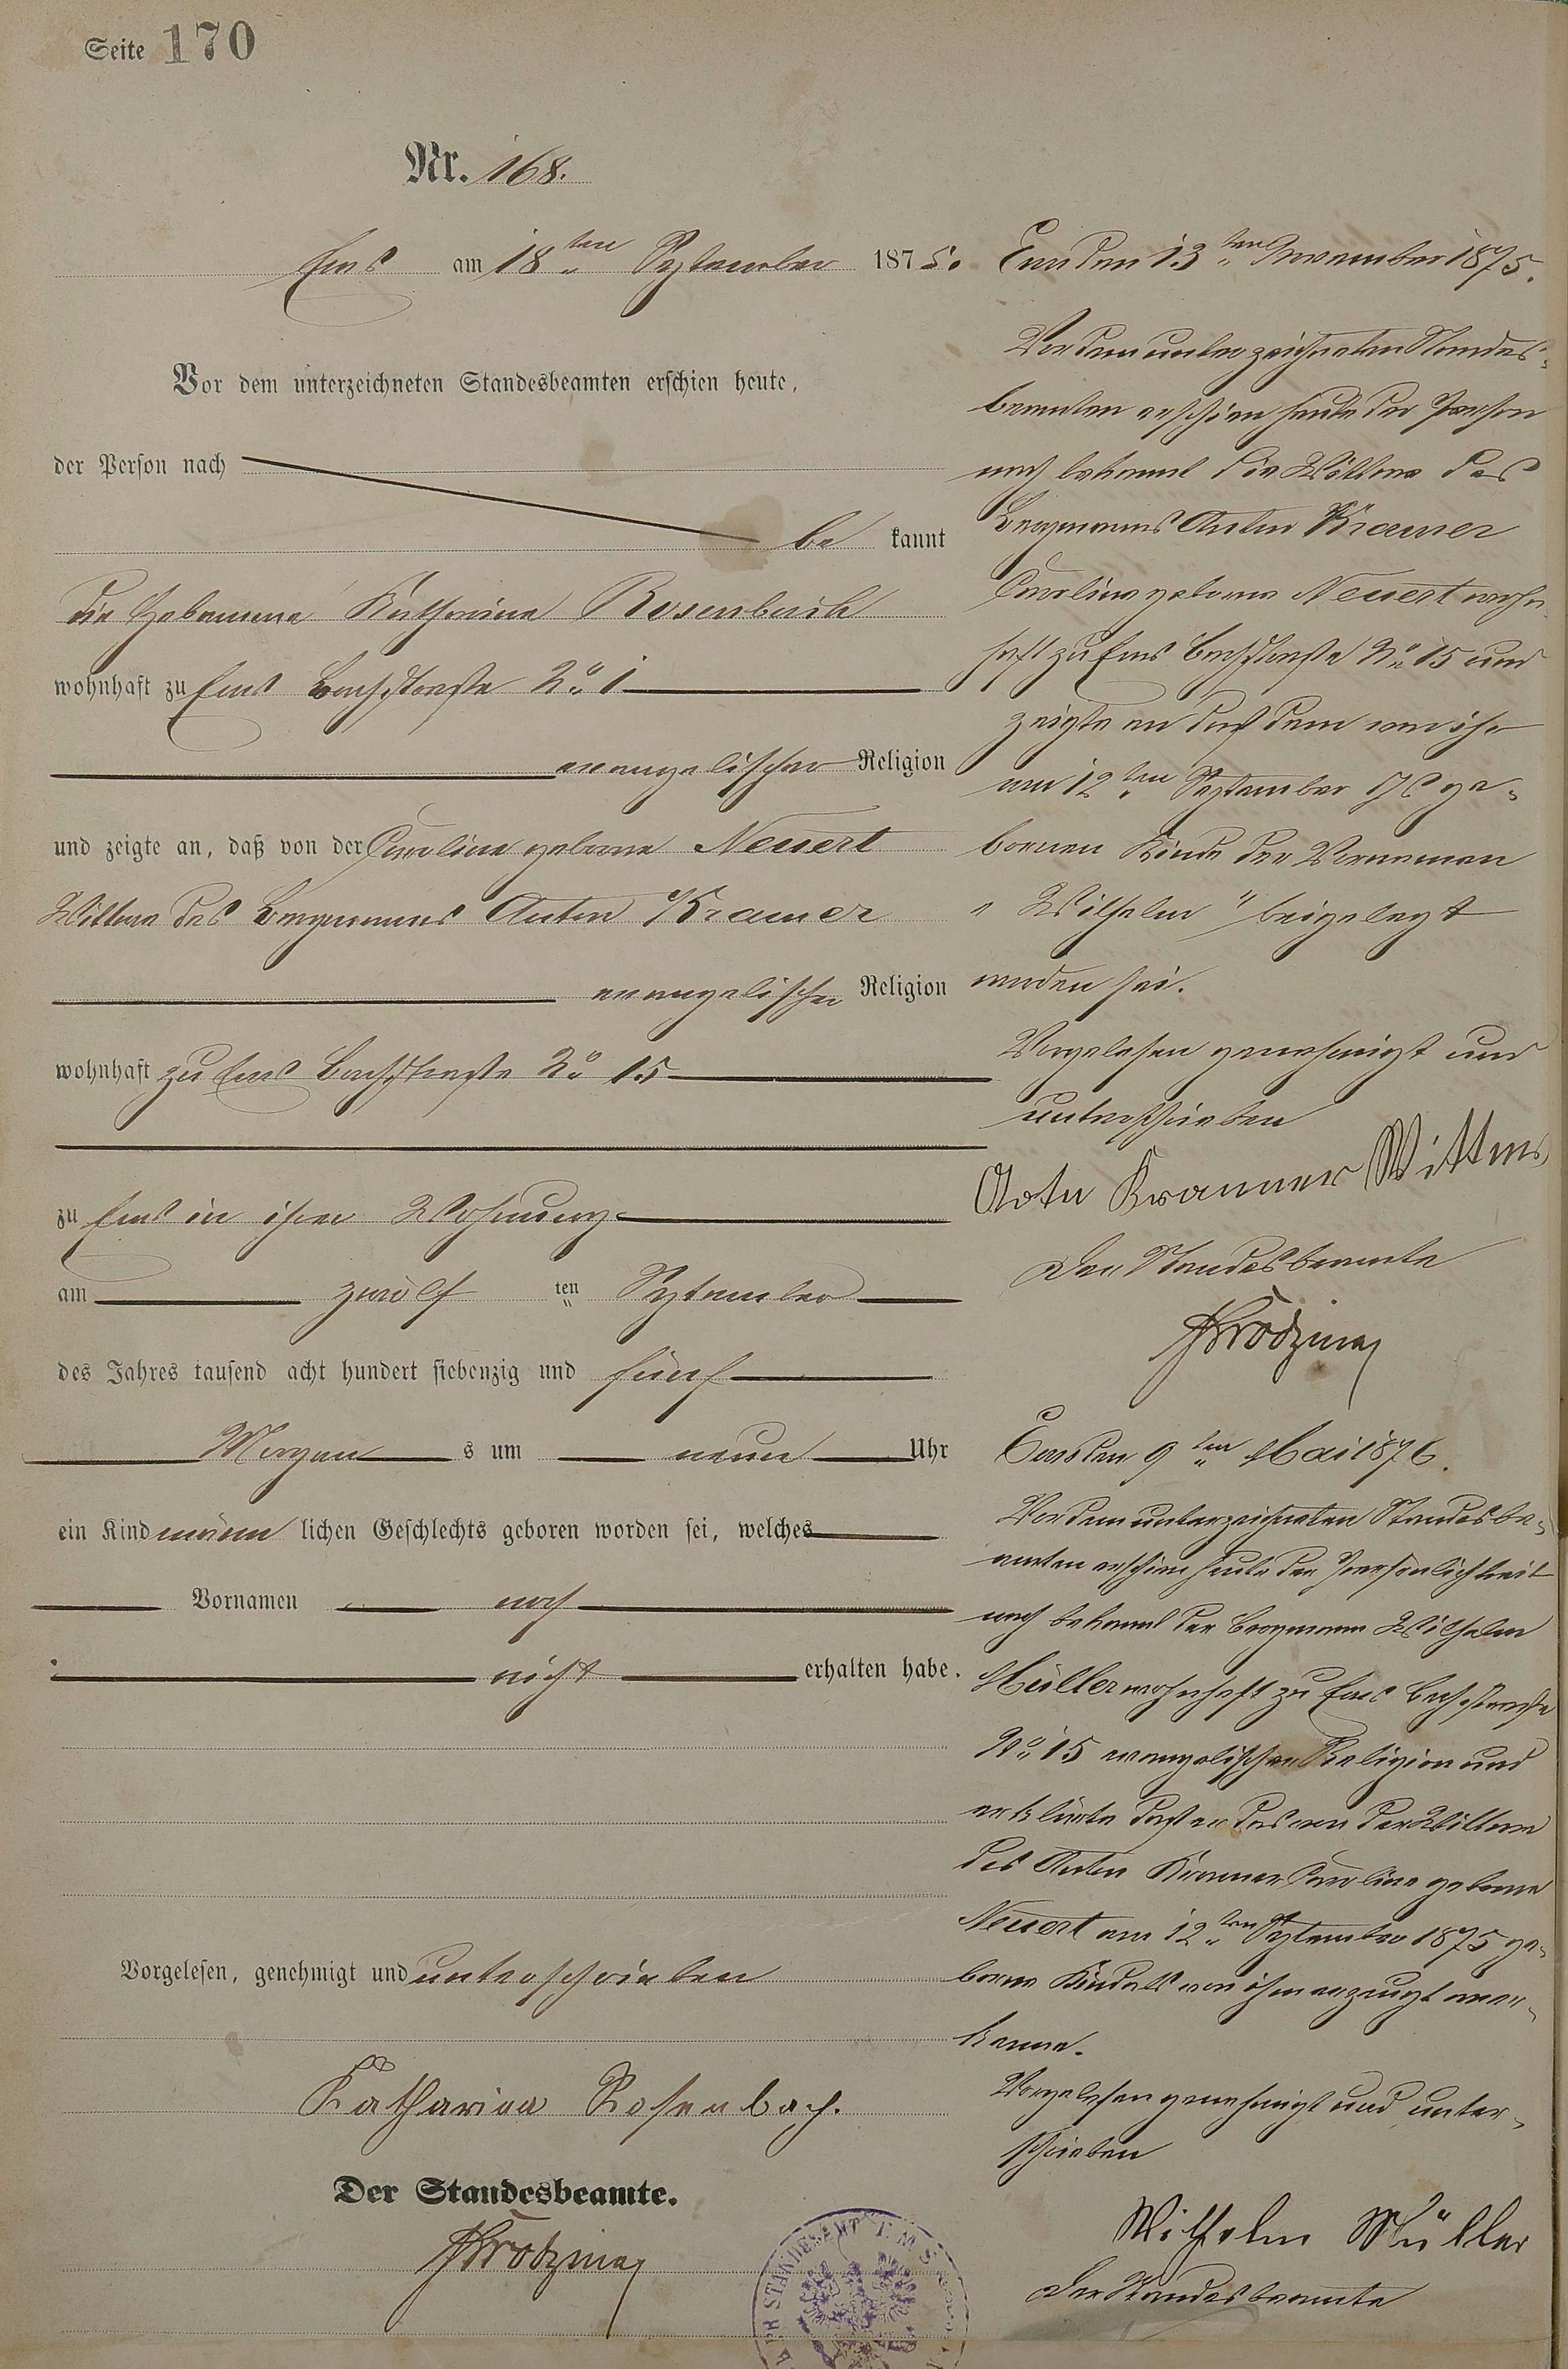 Seite 170
Nr. 168.
Ems am 18ten September 1875.
Vor dem unterzeichneten Standesbeamten erschien heute,
der Person nach
be kannt
die Hebamme Katharina Rosenbach
wohnhaft zu Ems Bachstraße No 1
evangelischer Religion
und zeigte an, daß von der Caroline geborne Neuert
Wittwe des Bergmanns Anton Kramer
evangelischer Religion
wohnhaft zu Ems Bachstraße No 15
zu Ems in ihrer Wohnung
am zwölf ten September
des Jahres tausend acht hundert siebenzig und fünf
Morgen s um neun Uhr
ein Kind männ lichen Geschlechts geboren worden sei, welches
Vornamen noch
nicht erhalten habe.
Vorgelesen, genehmigt und unterschrieben
Katharina Rosenbach.
Der Standesbeamte.
STANDESAMT EMS
Ems den 13ten November 1875.
Vor dem unterzeichneten Standes-
beamten erschien heute der Person
nach bekannt die Wittwe des
Bergmanns Anton Kramer
Caroline geborne Neuert wohn
haft zu Ems Bachstraße No 15 und
zeigte an daß dem von ihr
am 12ten September ge-
bornen Kinde der Vornamen
"Wilhelm" beigelegt
worden sei.
Vorgelesen genehmigt und
unterschrieben
Kramer Wittwe
Der Standesbeamte
Ems den 9ten Mai 1876.
Vor dem unterzeichneten Standesbe-
amten erschien heute der Persönlichkeit
nach bekannt der Bergmann Wilhelm
Müller wohnhaft zu Ems Bachstraße
No 15 evangelischer Religion und
erklärte daß er das von der Wittwe
des Anton Kramer Caroline geborne
Neuert am 12ten September 1875 ge-
borne Kind als von ihm erzeugt aner-
kenne.
Vorgelesen genehmigt und unter-
schrieben
Wilhelm Müller
Der Standesbeamte